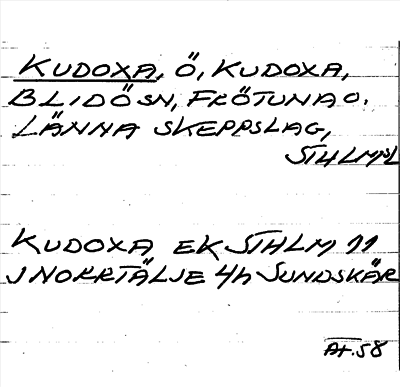 KUDOXA, Ö, KUDOXA,
BLIDÖ SN, FRÖTUNA O.
LÄNNA SKEPPSLAG,
STHLMSL
KUDOXA EK STHLM 11
J NORRTÄLJE 4h SUNDSKÄR
AF.58